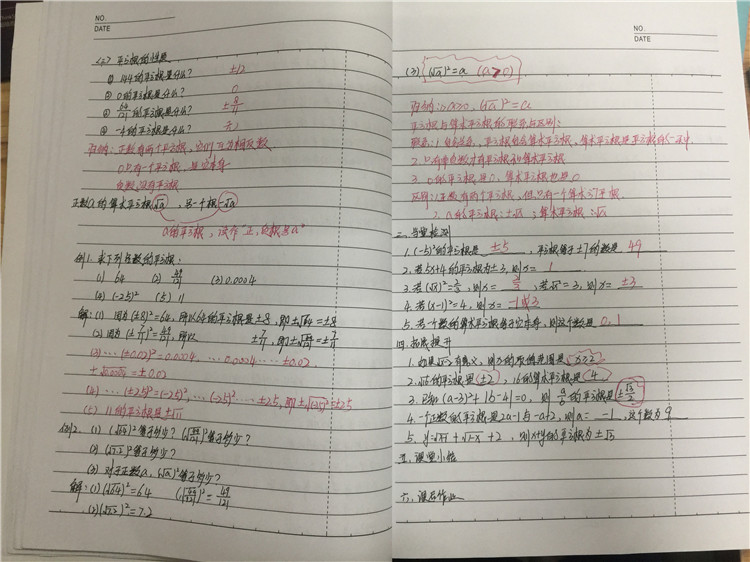 NO.
DATE
<二> 平方根的性质
① 144的平方根是什么? ±12
② 0的平方根是什么? 0
③ 的平方根是什么?
④ -4的平方根是什么? 无
归纳:正数有两个平方根,它们互为相反数
0只有一个平方根,是它本身
负数没有平方根
正数a的算术平方根√a,另一个根-√a
a的平方根,读作“正、负根号a”
例1.求下列各数的平方根:
(1) 64 (2) 49/ (3) 0.0004
(4) (-25)² (5) 11
解:(1) 因为(±8)²=64,所以64的平方根是±8,即±√64=±8
(2) 因为 所以 即
(3) … (±0.02)²=0.0004, …0.0004 … ±0.02.
±√0.0004=±0.02
(4) … (±25)²=(-25)², …(-25)² … ±25,即±√(-25)²=±25
(5) 11的平方根是±√11
例2. (1) (√64)²等于多少?(√49/121)²等于多少?
(2) (√7.2)²等于多少?
(3) 对于正数a,(√a)²等于多少?
解:(1)(√64)²=64 (√49/121)²=49/121
(2)(√7.2)²=7.2
NO.
DATE
(3) (√a)²=a (a≥0)
归纳: (√a)²=a
平方根与算术平方根的联系与区别:
联系:1. 包含关系,平方根包含算术平方根,算术平方根是平方根的一种
2. 只有非负数才有平方根和算术平方根
3. 0的平方根是0,算术平方根也是0
区别:1. 正数有两个平方根,但只有一个算术平方根.
2. a的平方根:±√a;算术平方根:√a
三.当堂检测
1. (-5)²的平方根是 ±5 ,平方根等于±7的数是 49
2. 若5x+4的平方根为±3,则x= 1
3. 若(√x)²= ,则x= ;若√x²=3,则x= ±3
4. 若(x-1)²=4,则x= -1或3
5. 若一个数的算术平方根等于它本身,则这个数是 0,1
四.拓展提升
1. 如果√x-2有意义,则x的取值范围是 x≥2
2. √16的平方根是 ±2 ,16的算术平方根是 4
3. 已知(a-3)²+|b-4|=0,则a/b的平方根是±√3/2
4. 一个正数的平方根是2a-1与-a+2,则a= -1 ,这个数为 9
5. 则 的平方根为±√3
五.课堂小结
六.课后作业